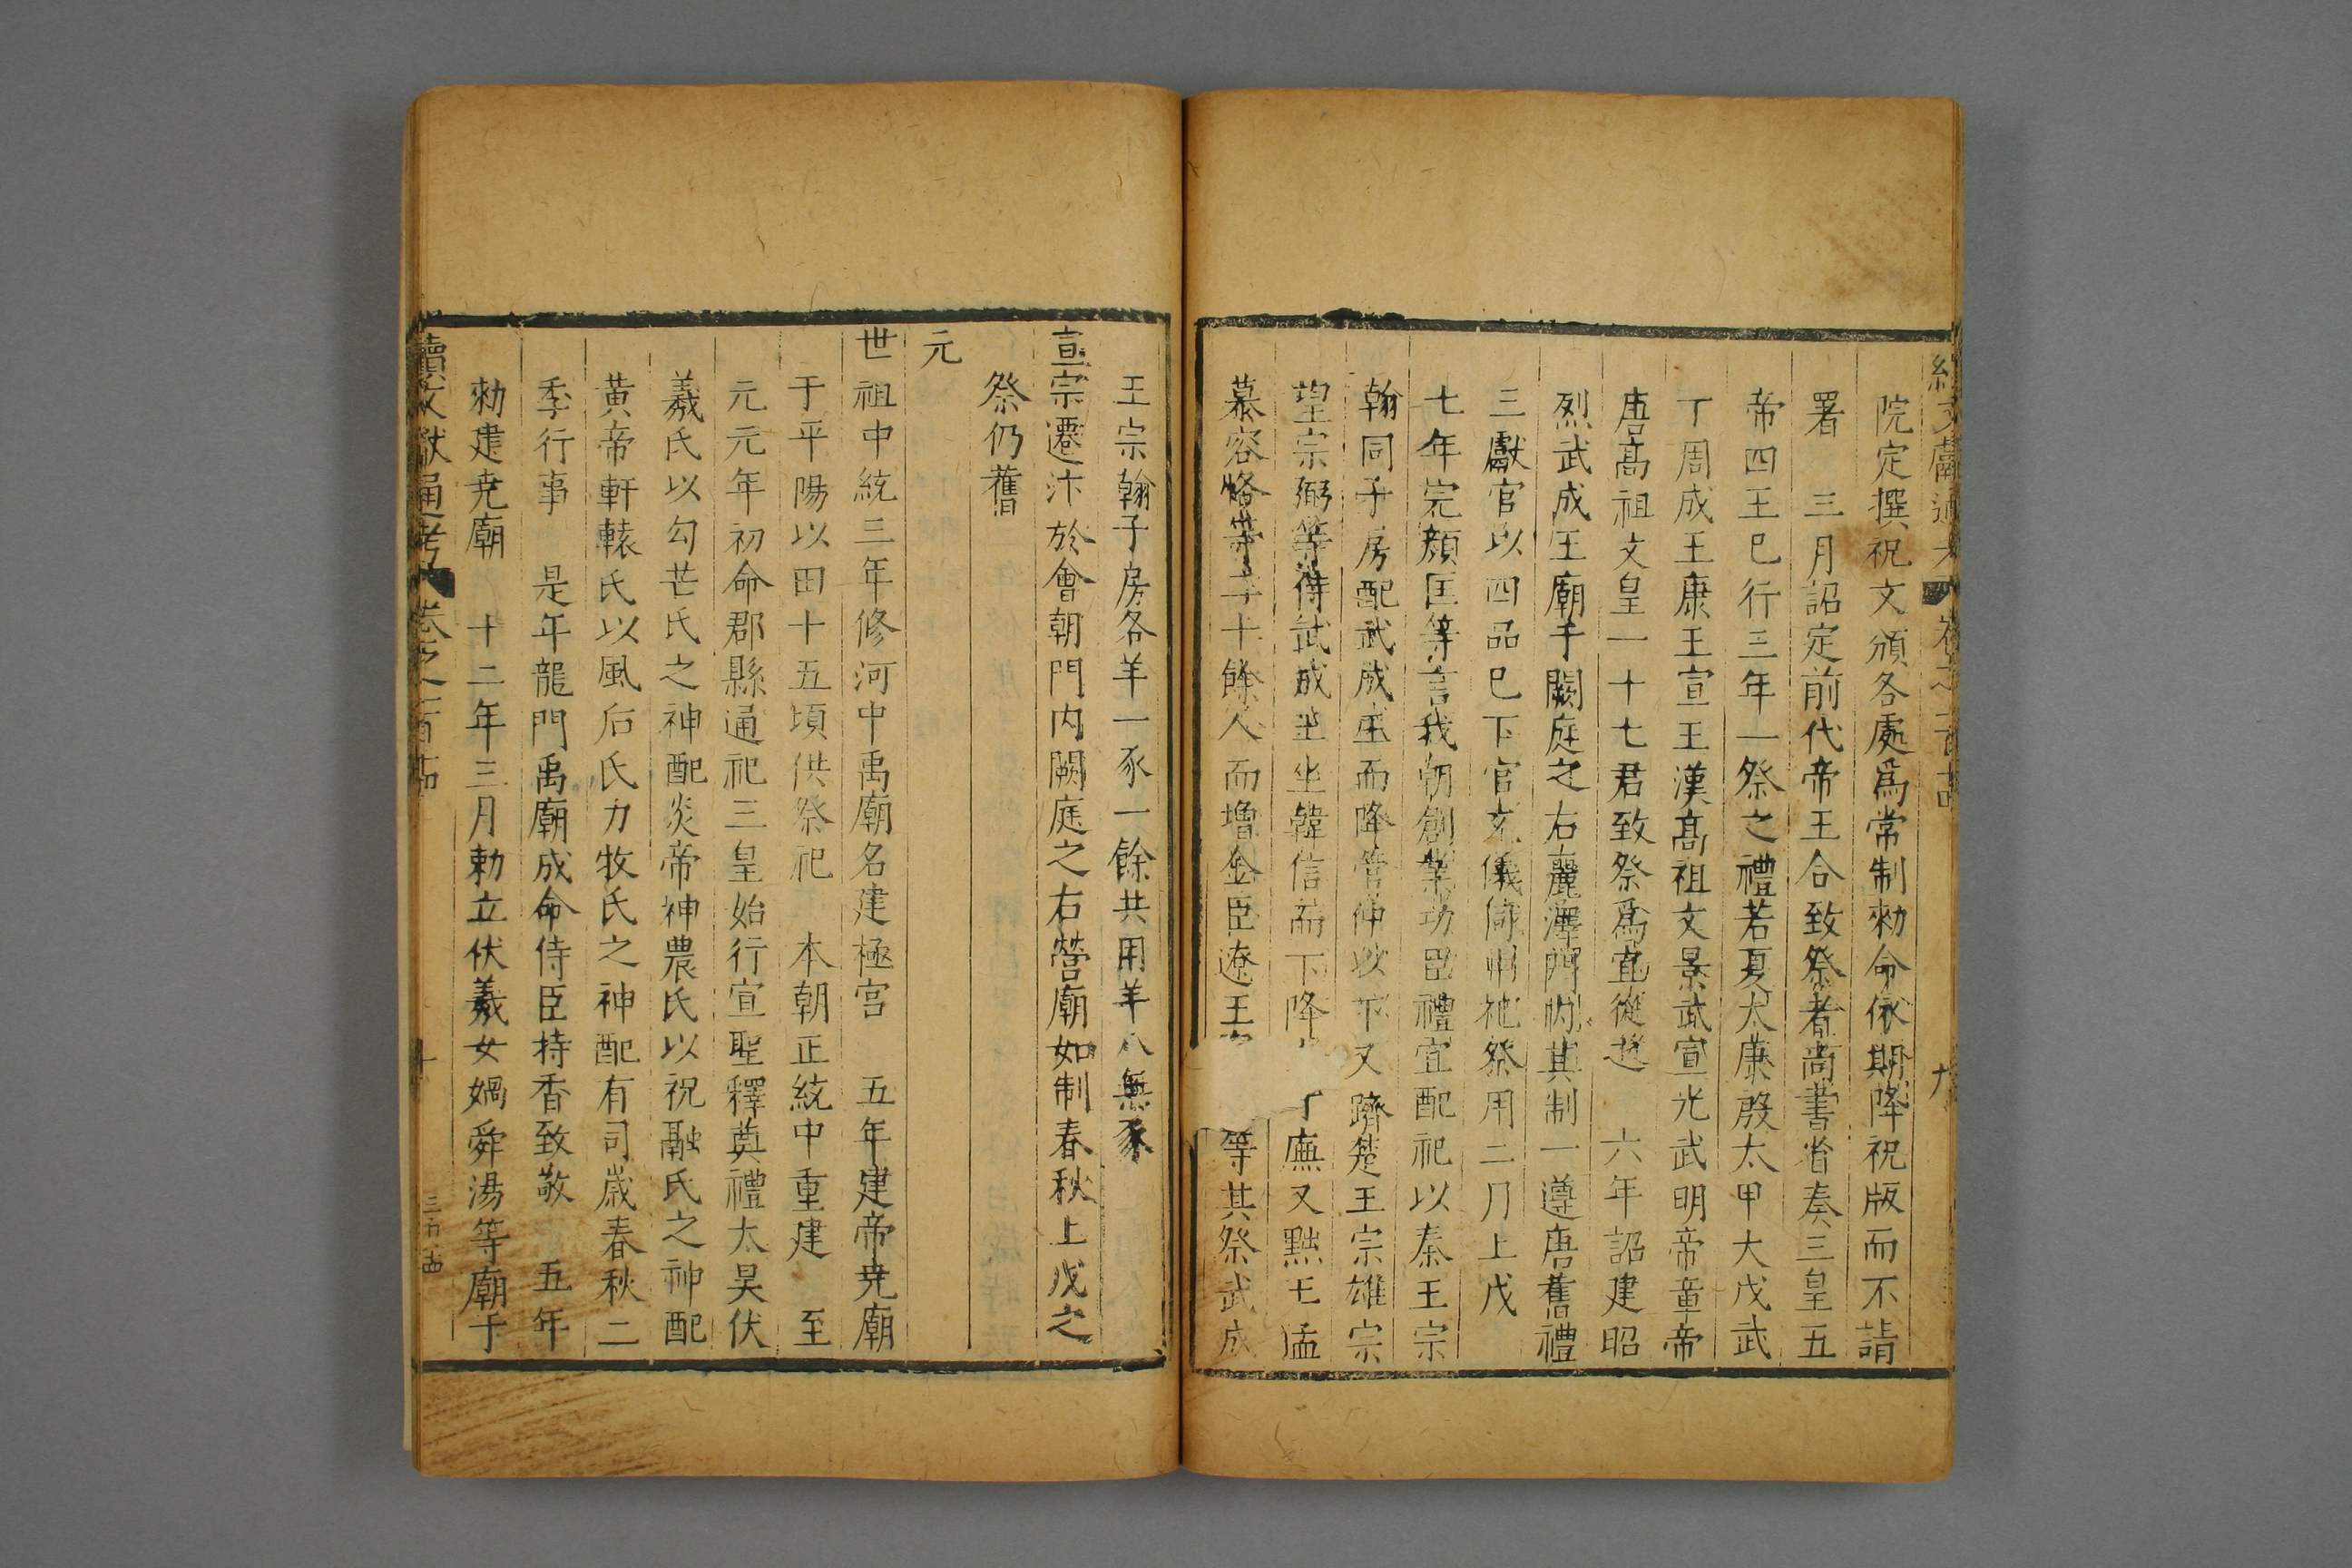 院定撰祝文頒各處爲常制勑命依期降祝版而不請
署 三月詔定前代帝王合致祭者尚書省奏三皇五
帝四王巳行三年一祭之禮若夏太康殷太甲大戊武
丁周成王康王宣王漢髙祖文景武宣光武明帝章帝
唐髙祖文皇一十七君致祭爲宜從之 六年詔建昭
烈武成王廟于闕庭之右麗澤門内其制一遵唐舊禮
三獻官以四品巳下官充儀同中祀祭用二月上戊
七年完顔匡等言我朝創業功臣禮宜配祀以秦王宗
翰同子房配武成王而降管仲以下又躋楚王宗雄宗
望宗弼等侍武成王坐韓信而下降 廡又黜王孟
慕容恪等二十餘人而增金臣遼王 等其祭武成
王宗翰子房各羊一豕一餘共用羊八無豕
宣宗遷汴於會朝門内闕庭之右營廟如制春秋上戊之
祭仍舊
元
世祖中統三年修河中禹廟名建極宫 五年建帝尭廟
于平陽以田十五頃供祭祀 本朝正統中重建 至
元元年初命郡縣通祀三皇始行宣聖釋奠禮太昊伏
羲氏以勾芒氏之神配炎帝神農氏以祝融氏之神配
黄帝軒轅氏以風后氏力牧氏之神配有司歲春秋二
季行事 是年龍門禹廟成命侍臣持香致敬 五年
勑建尭廟 十二年三月勅立伏羲女媧舜湯等廟于
續文獻通考 卷之一百